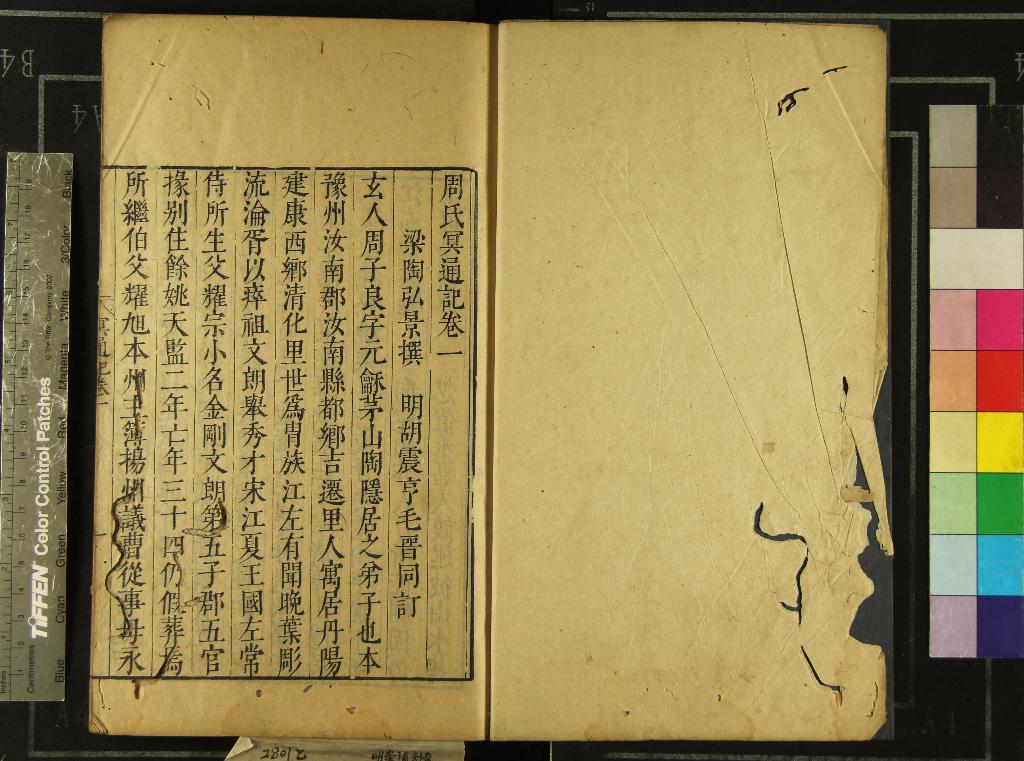 周氏冥通記卷一
梁陶弘景撰 明胡震亨毛晉同訂
玄人周子良字元龢茅山陶隱居之弟子也本
豫州汝南郡汝南縣都鄉吉遷里人寓居丹陽
建康西鄉清化里世爲胄族江左有聞晚葉彫
流淪胥以瘁祖文朗舉秀才宋江夏王國左常
侍所生父耀宗小名金剛文朗第五子郡五官
掾別住餘姚天監二年亡年三十四仍假葬焉
所繼伯父耀旭本州主簿揚州議曹從事母永
冥通記卷一
TIFFEN Color Control Patches
© The Tiffen Company, 2007
Inches
Centimetres
Blue
Cyan
Green
Yellow
Red
Magenta
White
3/Color
Black
B4
A4
A4